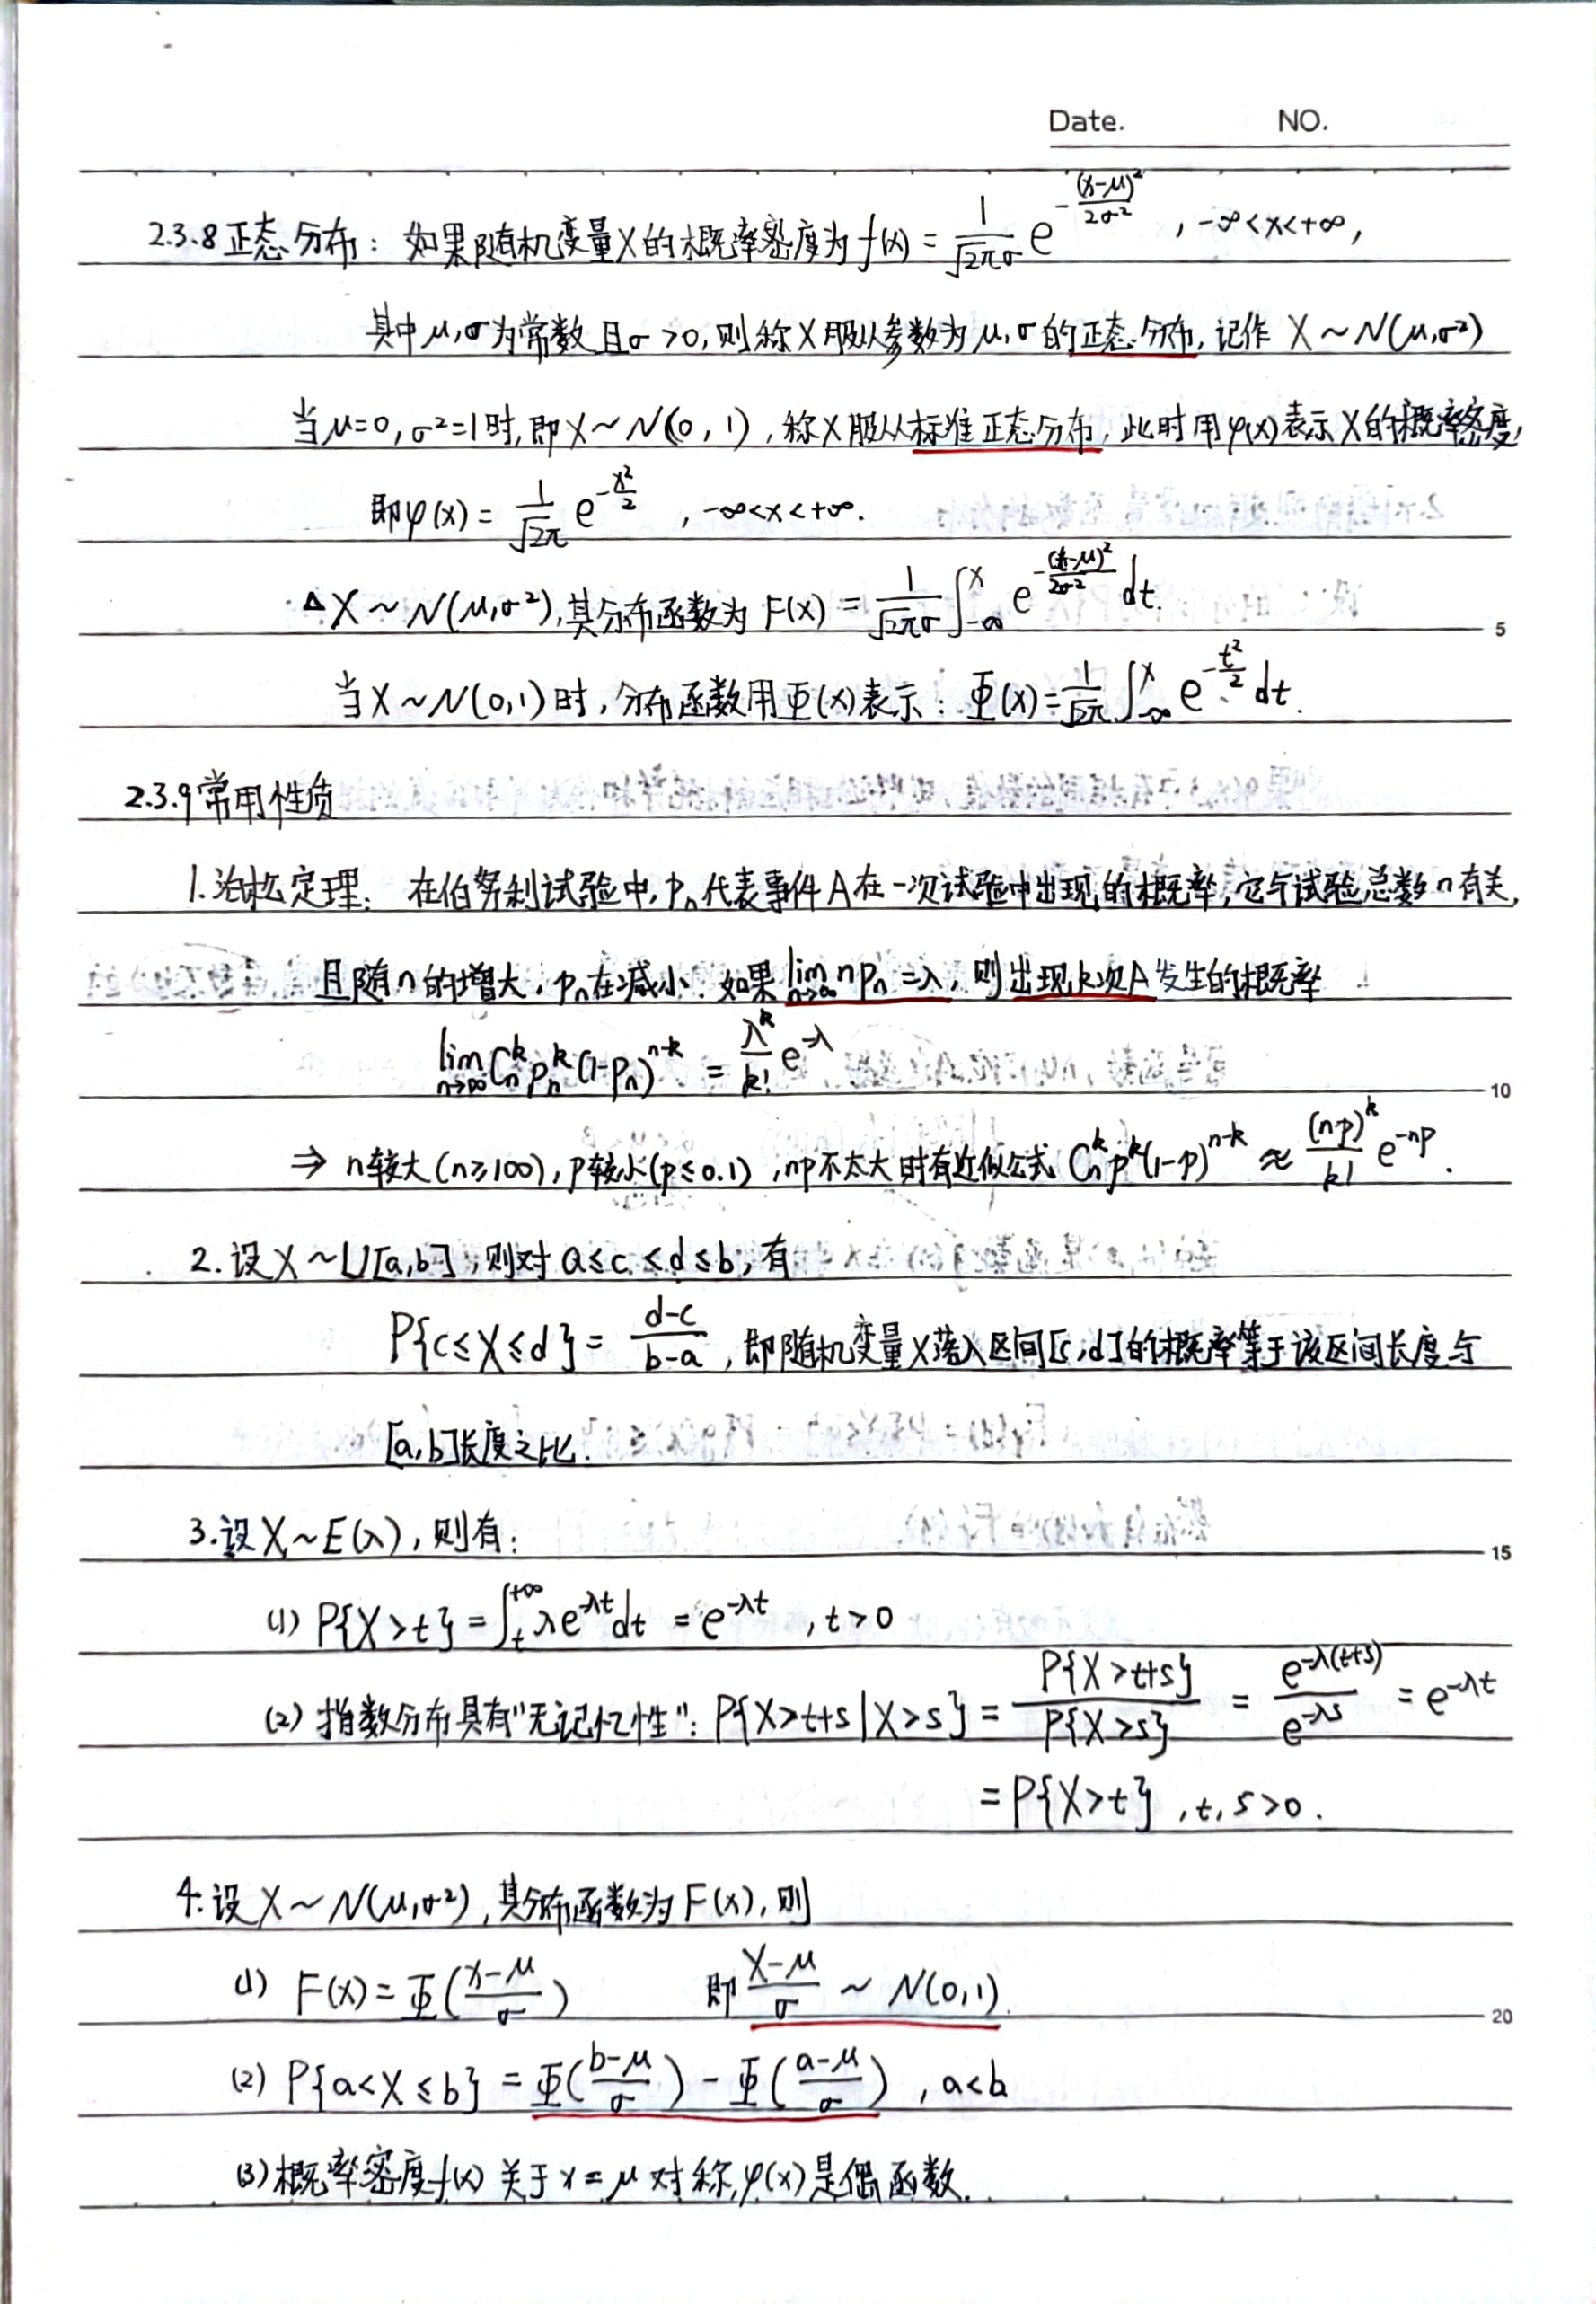 Date. NO.
2.3.8 正态分布：如果随机变量X的概率密度为 f(x) = \frac{1}{\sqrt{2π}σ} e^{-\frac{(x-μ)^2}{2σ^2}}, -∞<x<+∞,
其中μ,σ为常数且σ>0,则称X服从参数为μ,σ的正态分布,记作 X~N(μ,σ²)
当μ=0,σ²=1时,即X~N(0,1),称X服从标准正态分布,此时用φ(x)表示X的概率密度,
即φ(x) = \frac{1}{\sqrt{2π}} e^{-\frac{x^2}{2}}, -∞<x<+∞.
Δ X~N(μ,σ²),其分布函数为 F(x) = \frac{1}{\sqrt{2π}σ} ∫_{-∞}^{x} e^{-\frac{(t-μ)^2}{2σ^2}} dt.
5
当X~N(0,1)时,分布函数用Φ(x)表示：Φ(x) = \frac{1}{\sqrt{2π}} ∫_{-∞}^{x} e^{-\frac{t^2}{2}} dt.
2.3.9 常用性质
1.泊松定理：在伯努利试验中,p_n代表事件A在一次试验中出现的概率,它与试验总数n有关,
且随n的增大,p_n在减小.如果 \lim_{n→∞} np_n = λ,则出现k次A发生的概率
\lim_{n→∞} C_n^k p_n^k (1-p_n)^{n-k} = \frac{λ^k}{k!} e^{-λ}
10
⇒ n较大(n≥100),p较小(p≤0.1),np不太大时有近似公式 C_n^k p^k (1-p)^{n-k} ≈ \frac{(np)^k}{k!} e^{-np}.
2.设X~U[a,b],则对 a≤c<d≤b,有
P{c≤X≤d} = \frac{d-c}{b-a},即随机变量X落入区间[c,d]的概率等于该区间长度与
[a,b]长度之比.
3.设X~E(λ),则有：
15
(1) P{X>t} = ∫_{t}^{+∞} λe^{-λt} dt = e^{-λt}, t>0
(2) 指数分布具有"无记忆性"：P{X>t+s|X>s} = \frac{P{X>t+s}}{P{X>s}} = \frac{e^{-λ(t+s)}}{e^{-λs}} = e^{-λt}
= P{X>t}, t,s>0.
4.设X~N(μ,σ²),其分布函数为F(x),则
(1) F(x) = Φ(\frac{x-μ}{σ}) 即 \frac{X-μ}{σ} ~ N(0,1).
20
(2) P{a<X≤b} = Φ(\frac{b-μ}{σ}) - Φ(\frac{a-μ}{σ}), a<b
(3) 概率密度f(x)关于x=μ对称,φ(x)是偶函数.